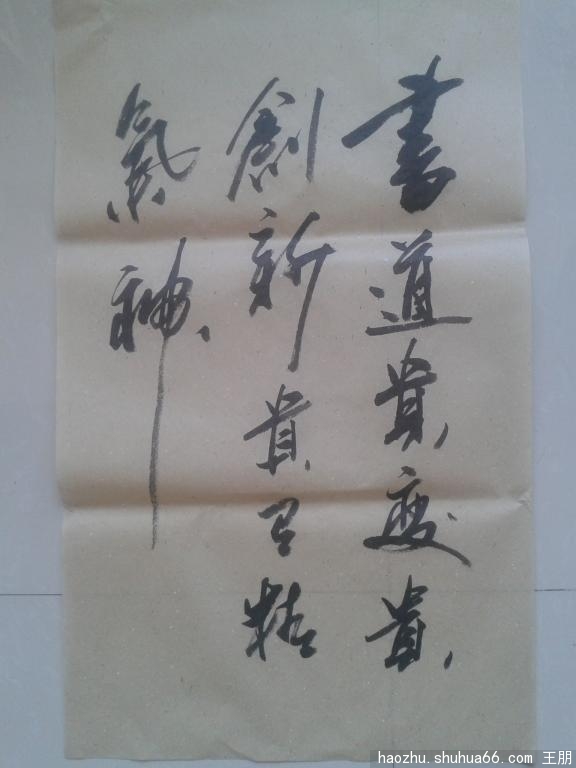 書道貴變貴
創新貴有精
氣神
haozhu.shuhua66.com 王朋